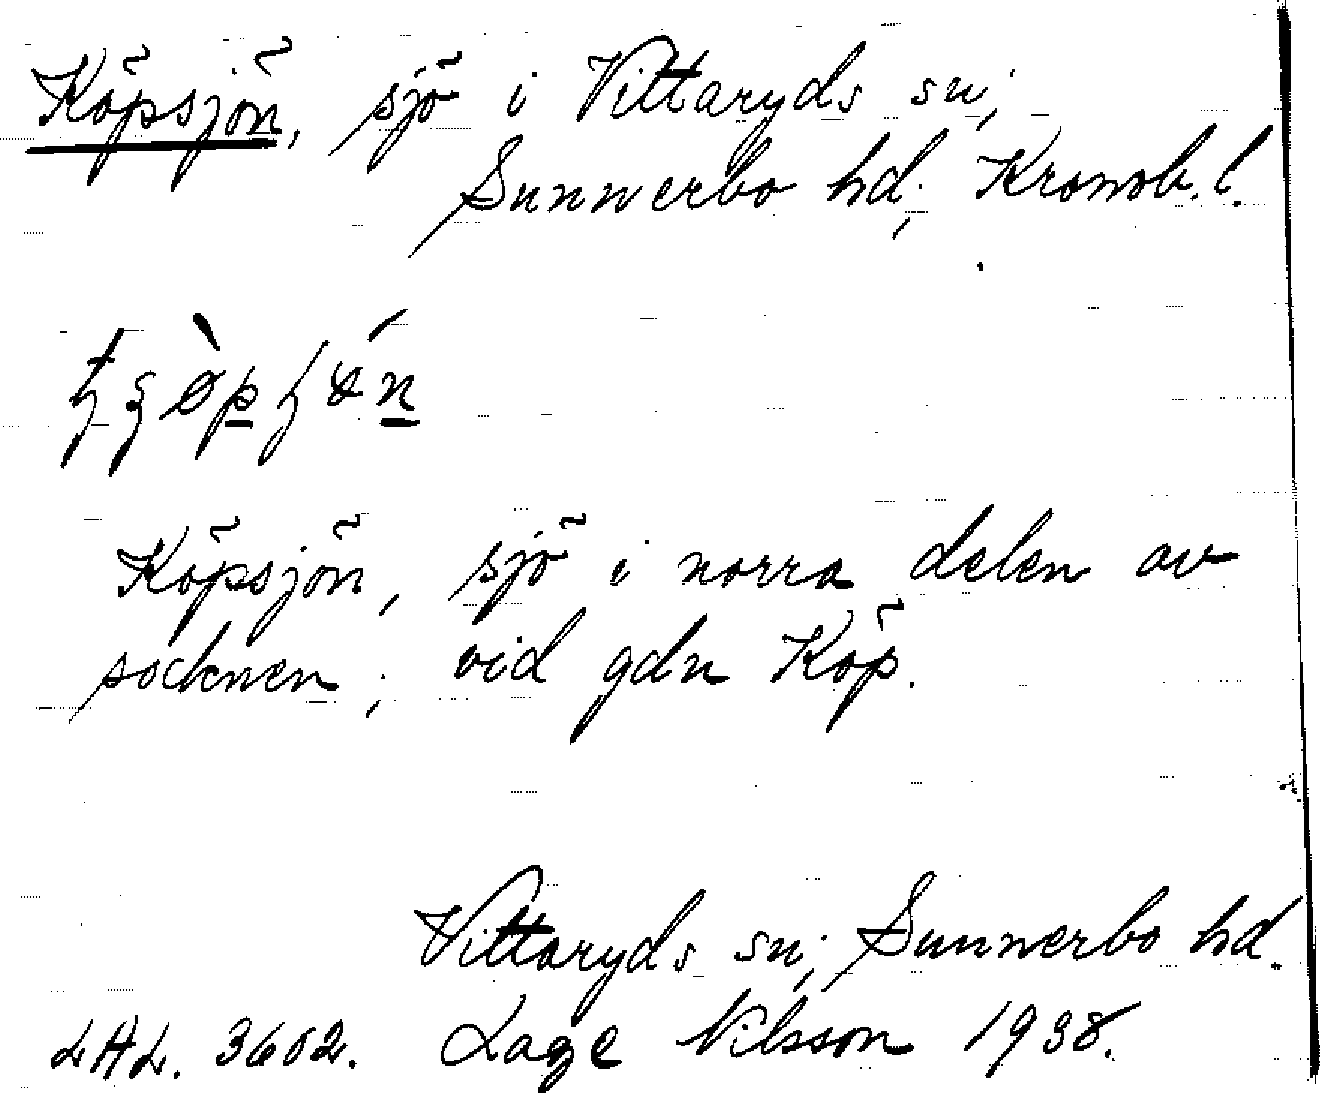 Köpsjön, sjö i Vittaryds sn;
Sunnerbo hd; Kronob. l.
Köpsjön, sjö i norra delen av
socknen; vid gdn Köp.
Vittaryds sn; Sunnerbo hd.
LAL. 3602. Lage Nilsson 1938.